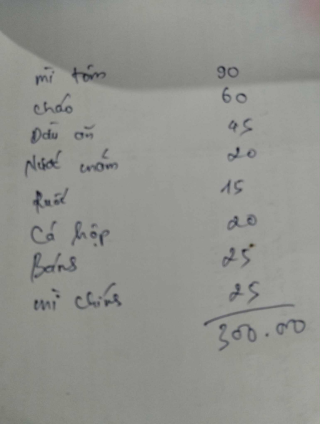 mì tôm 90
cháo 60
Dầu ăn 45
Nước mắm 20
Ruốc 15
Cá hộp 20
Bánh 25
mì chính 25
300.00